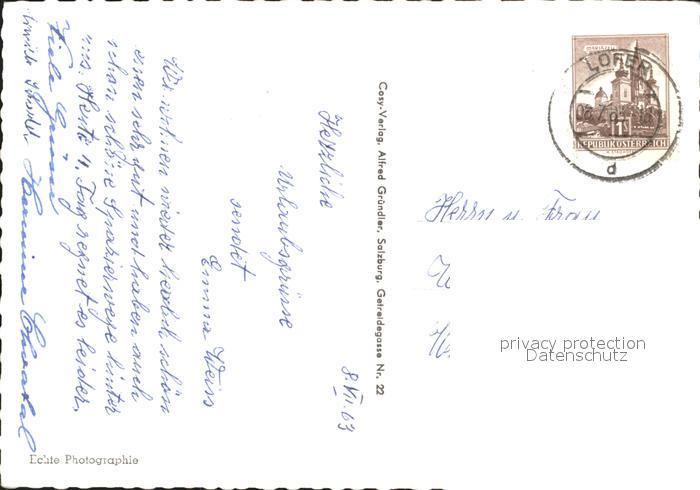 8.VII.63
Herzliche
Urlaubsgrüsse
sendet
Emma Weiss
Wir wohnen wieder herrlich, schön
essen sehr gut und haben auch
schon schöne Spazierwege hinter
uns. Heute 4. Tag regnet es leider.
Viele Grüsse Hermine
Cosy-Verlag, Alfred Gründler, Salzburg, Getreidegasse Nr. 22
Echte Photographie
LOFER
d
REPUBLIK ÖSTERREICH
Herrn u. Frau
W
H
privacy protection
Datenschutz